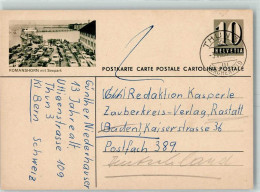 POSTKARTE CARTE POSTALE CARTOLINA POSTALE
10
HELVETIA
THUN
ROMANSHORN mit Seepark
Redaktion Kasperle
Zauberkreis-Verlag, Rastatt
Baden, Kaiserstrasse 36
Postfach 389
Günther Niederhauser
13 Jahre alt
Uttigenstrasse 109
Thun 3
Kt. Bern Schweiz